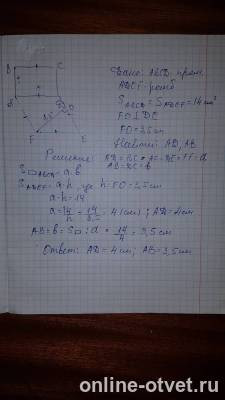 B C
A D
3,5
F E
Дано: ABCD - прям.
ADEF - ромб
S ABCD = S ADEF = 14 см²
FO ⊥ DE
FO = 3,5 см
Найти: AD, AB
Решение:
AB = DC = b
S ABCD = a·b
S ADEF = a·h, где h = FO = 3,5 см
a·h = 14
a = 14/h = 14/3,5 = 4 (см); AD = 4 см
AB = b = S□ : a = 14/4 = 3,5 см
Ответ: AD = 4 см; AB = 3,5 см
online-otvet.ru